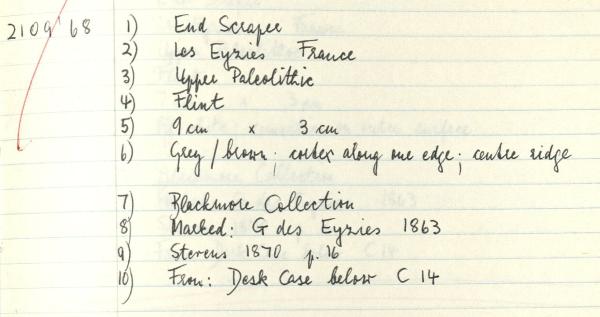 2109' 68 1) End Scraper
2) Les Eyzies France
3) Upper Paleolithic
4) Flint
5) 9 cm x 3 cm
6) Grey / brown; cortex along one edge; centre ridge
7) Blackmore Collection
8) Marked: G des Eyzies 1863
9) Stevens 1870 p. 16
10) From: Desk Case below C 14